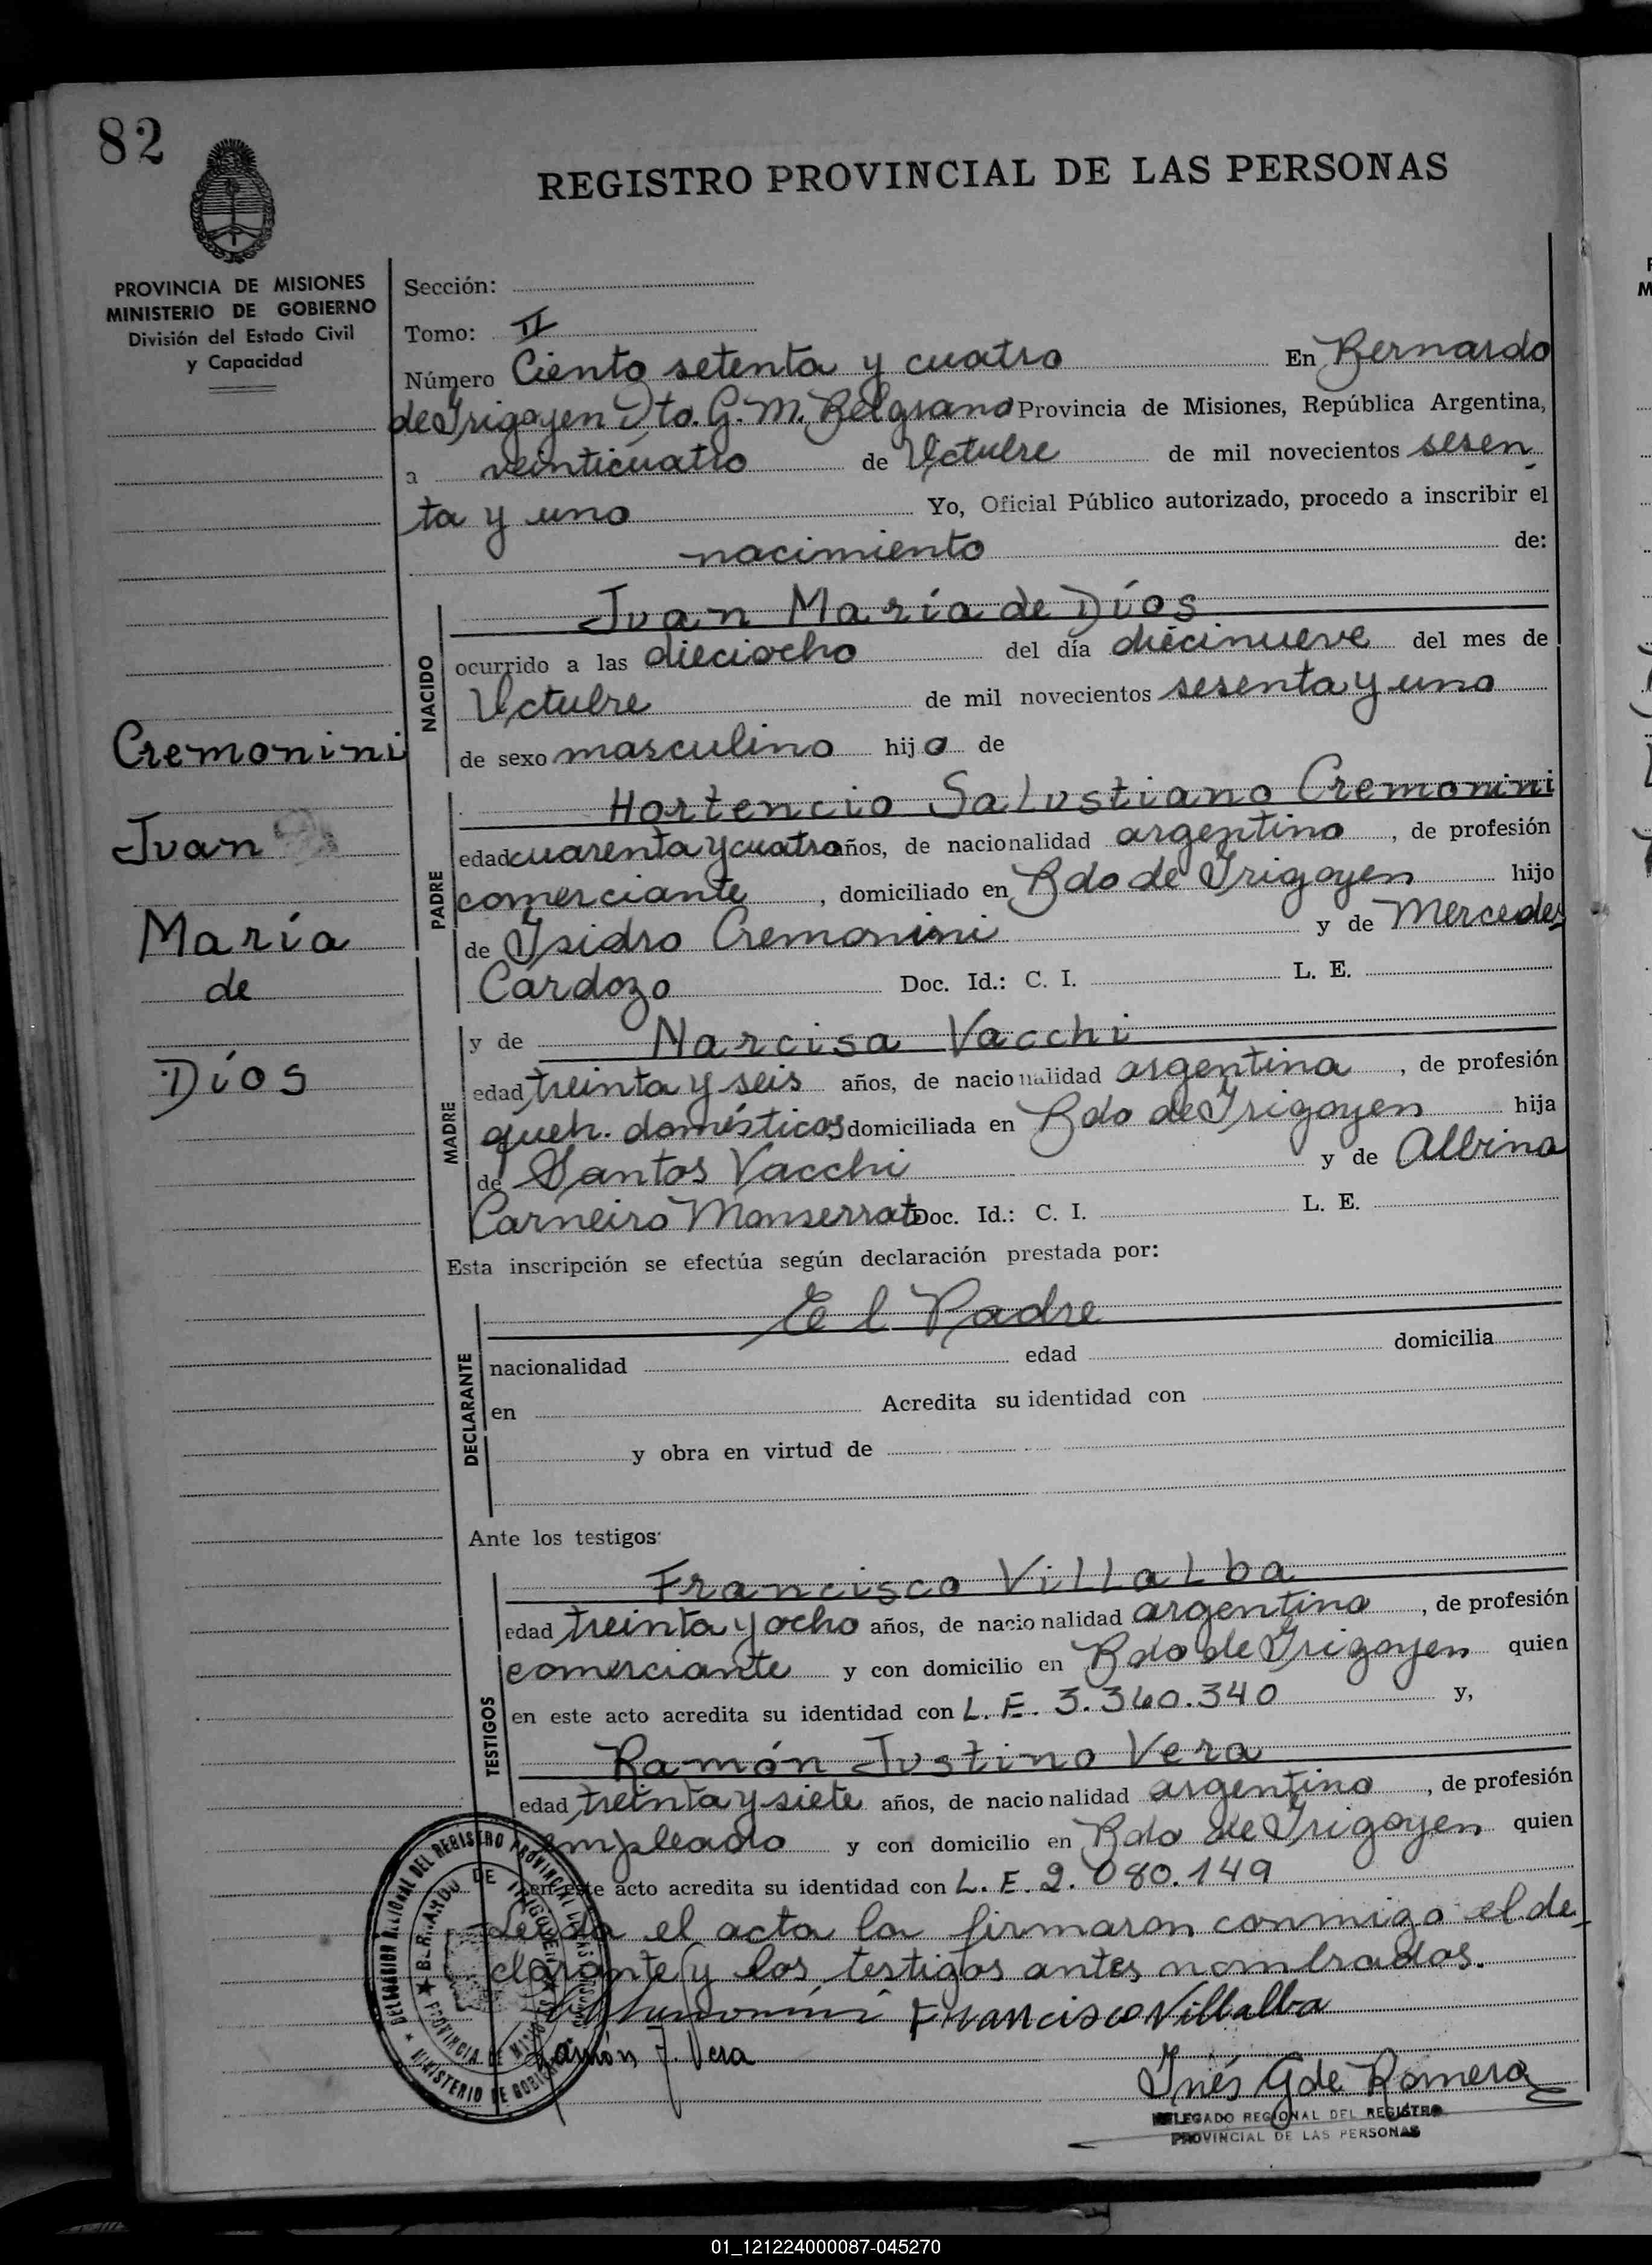 82
REGISTRO PROVINCIAL DE LAS PERSONAS
PROVINCIA DE MISIONES
MINISTERIO DE GOBIERNO
División del Estado Civil
y Capacidad
Sección:
Tomo: II
Número Ciento setenta y cuatro En Bernardo
de Irigoyen Dto. G. M. Belgrano Provincia de Misiones, República Argentina,
a veinticuatro de Octubre de mil novecientos sesen
ta y uno Yo, Oficial Público autorizado, procedo a inscribir el
nacimiento de:
NACIDO
Juan María de Dios
ocurrido a las dieciocho del día diecinueve del mes de
Octubre de mil novecientos sesenta y uno
de sexo masculino hijo de
Cremonini
Juan
María
de
Dios
PADRE
Hortencio Salustiano Cremonini
edad cuarenta y cuatro años, de nacionalidad argentino, de profesión
comerciante, domiciliado en Bdo de Irigoyen hijo
de Isidro Cremonini y de Mercedes
Cardozo Doc. Id.: C. I. L. E.
MADRE
y de Narcisa Vacchi
edad treinta y seis años, de nacionalidad argentina, de profesión
queh. domésticos domiciliada en Bdo de Irigoyen hija
de Santos Vacchi y de Albina
Carneiro Monserrat Doc. Id.: C. I. L. E.
Esta inscripción se efectúa según declaración prestada por:
DECLARANTE
El Padre
nacionalidad edad domicilia
en Acredita su identidad con
y obra en virtud de
Ante los testigos:
TESTIGOS
Francisco Villalba
edad treinta y ocho años, de nacionalidad argentino, de profesión
comerciante y con domicilio en Bdo de Irigoyen quien
en este acto acredita su identidad con L. E. 3.360.340 y,
Ramón Justino Vera
edad treinta y siete años, de nacionalidad argentino, de profesión
empleado y con domicilio en Bdo de Irigoyen quien
en este acto acredita su identidad con L. E. 2.080.149
Leída el acta la firmaron conmigo el de
clarante y los testigos antes nombrados.
Francisco Villalba
Ramón J. Vera
Inés G de Romero
DELEGADO REGIONAL DEL REGISTRO
PROVINCIAL DE LAS PERSONAS
DELEGACION REGIONAL DEL REGISTRO PROVINCIAL DE LAS PERSONAS
BERNARDO DE IRIGOYEN
PROVINCIA DE MISIONES
MINISTERIO DE GOBIERNO
01_121224000087-045270